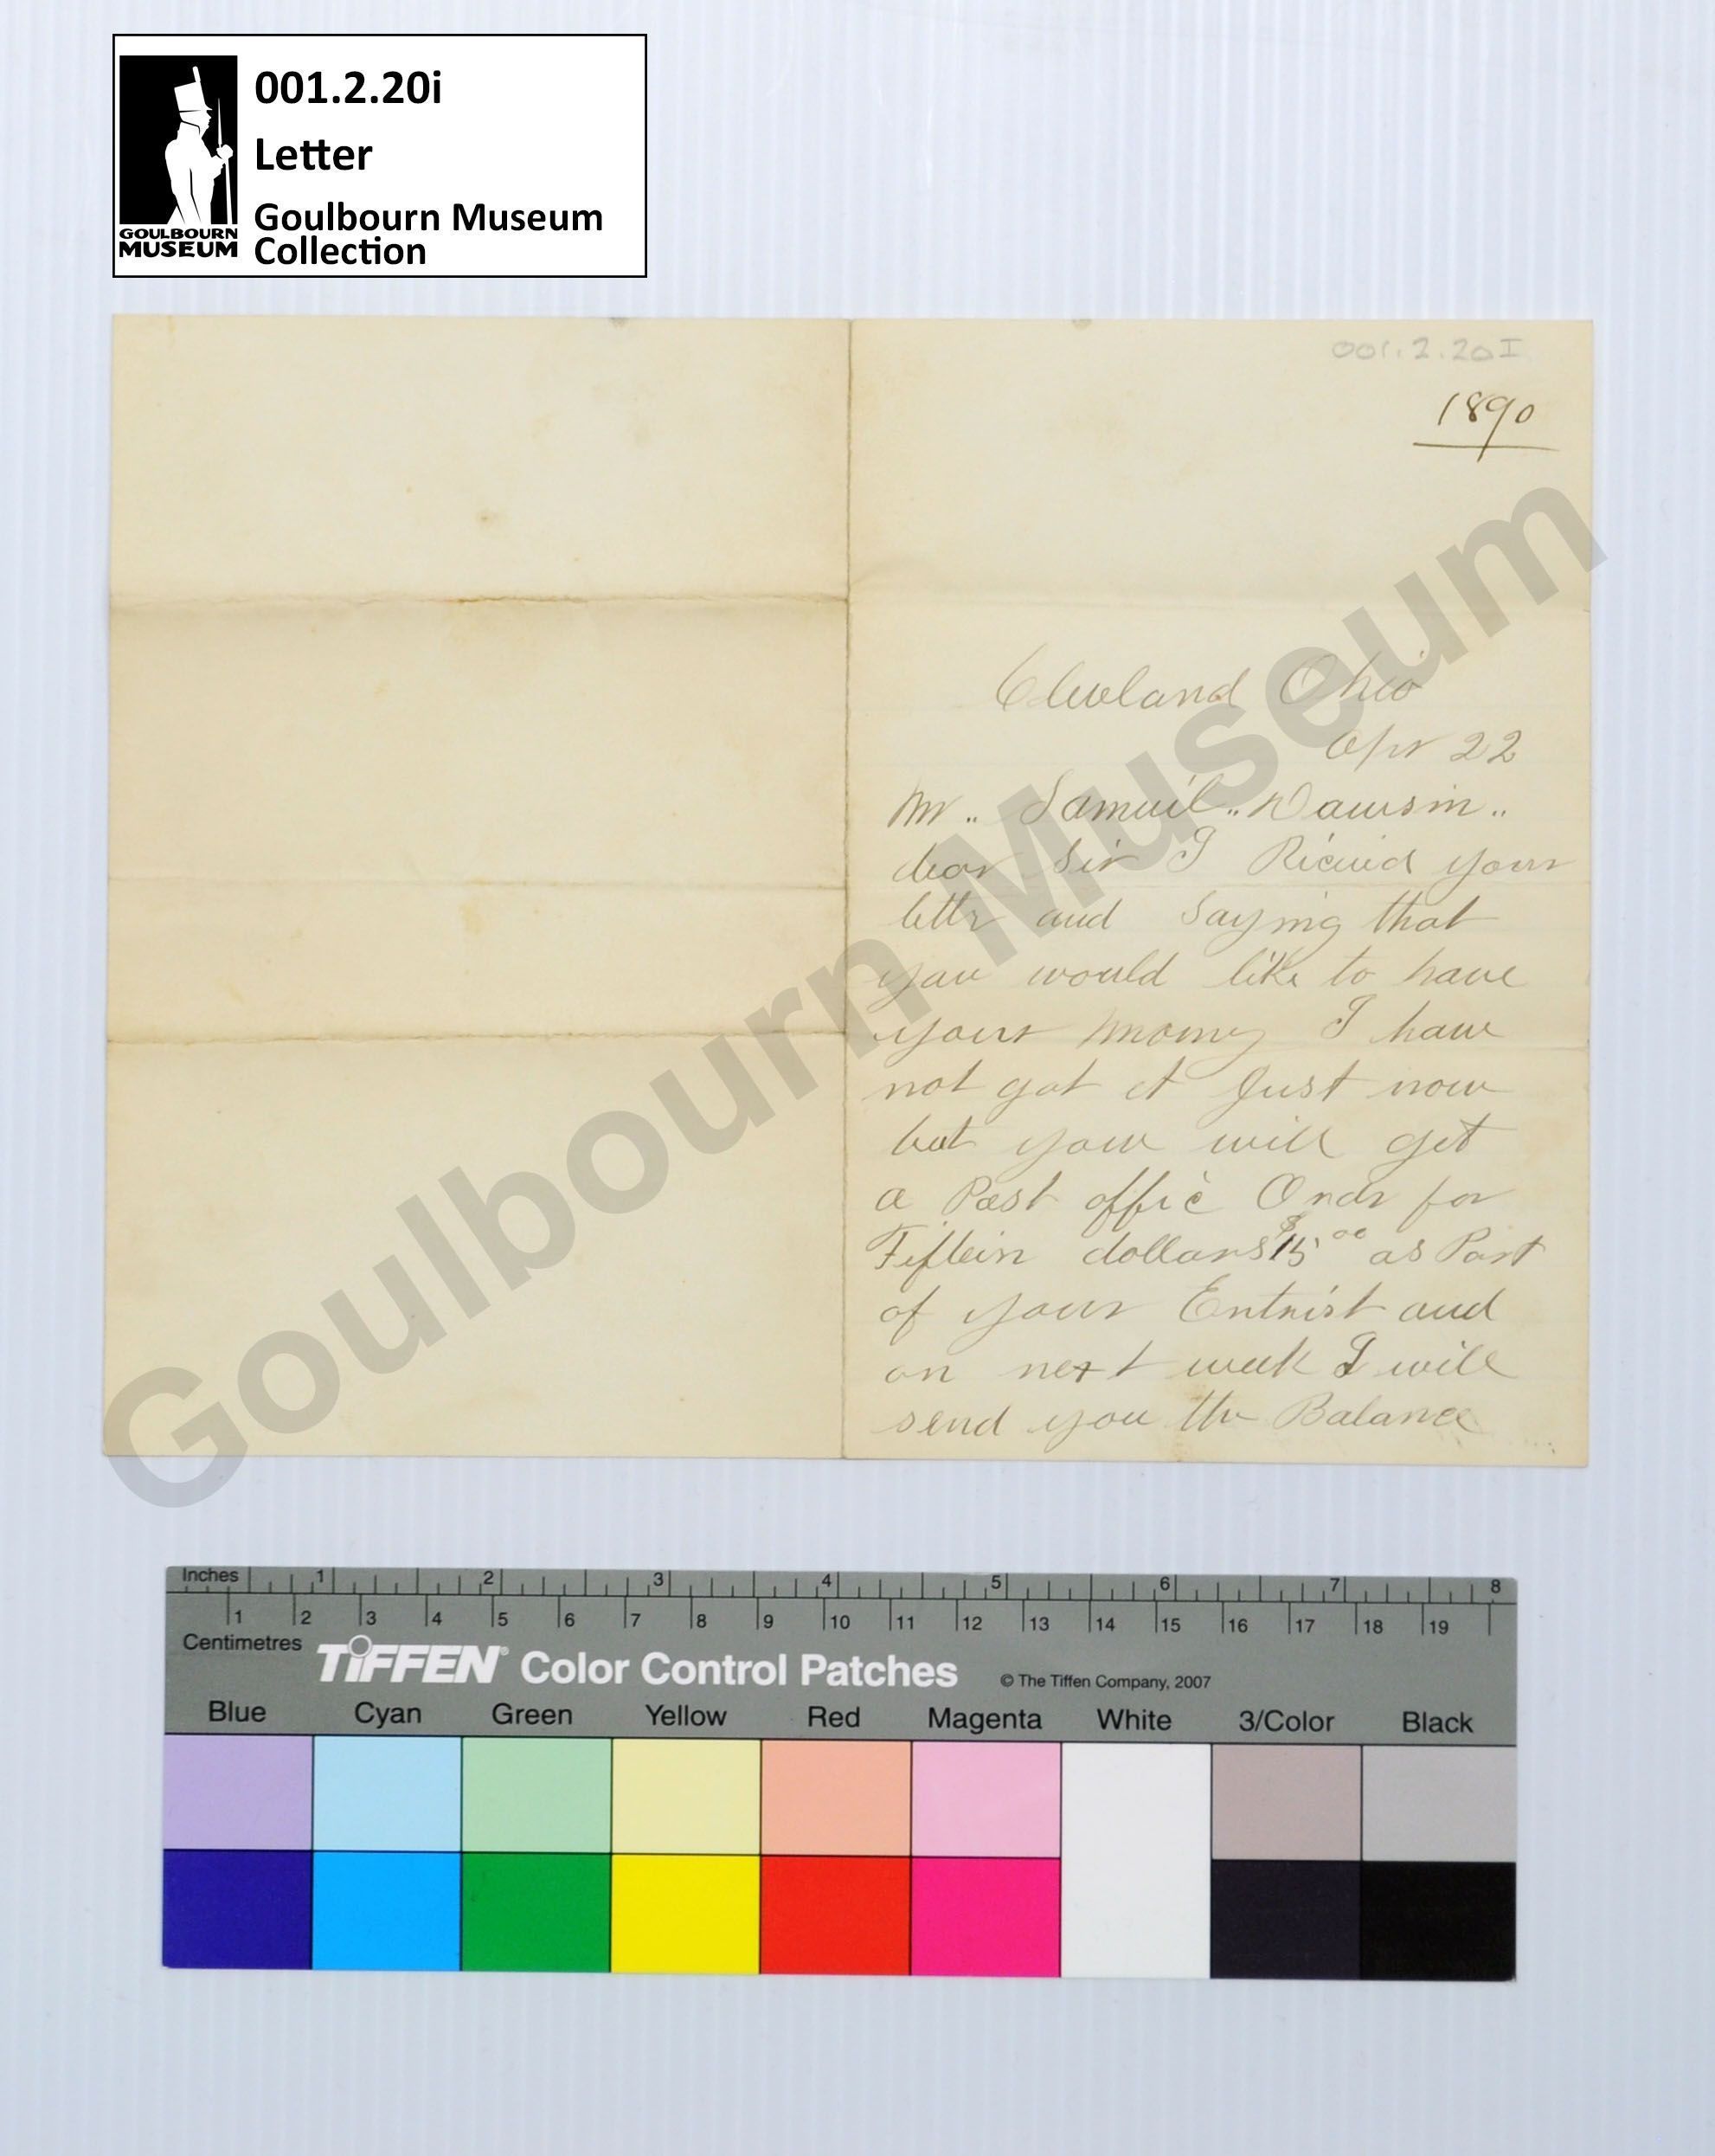 001.2.20i
Letter
Goulbourn Museum
Collection
GOULBOURN
MUSEUM
001.2.20I
1890
Cleveland Ohio
Apr 22
Mr .. Samuil .. Dawsin ..
dear Sir I Riceived your
lettr and Saying that
you would like to have
your money I have
not got it Just now
but you will get
a Post offic Ordr for
Fiftein dollars $15 00 as Part
of your Entrist and
on next week I will
send you the Balance
Goulbourn Museum
Inches 1 2 3 4 5 6 7 8
1 2 3 4 5 6 7 8 9 10 11 12 13 14 15 16 17 18 19
Centimetres
TIFFEN® Color Control Patches © The Tiffen Company, 2007
Blue Cyan Green Yellow Red Magenta White 3/Color Black